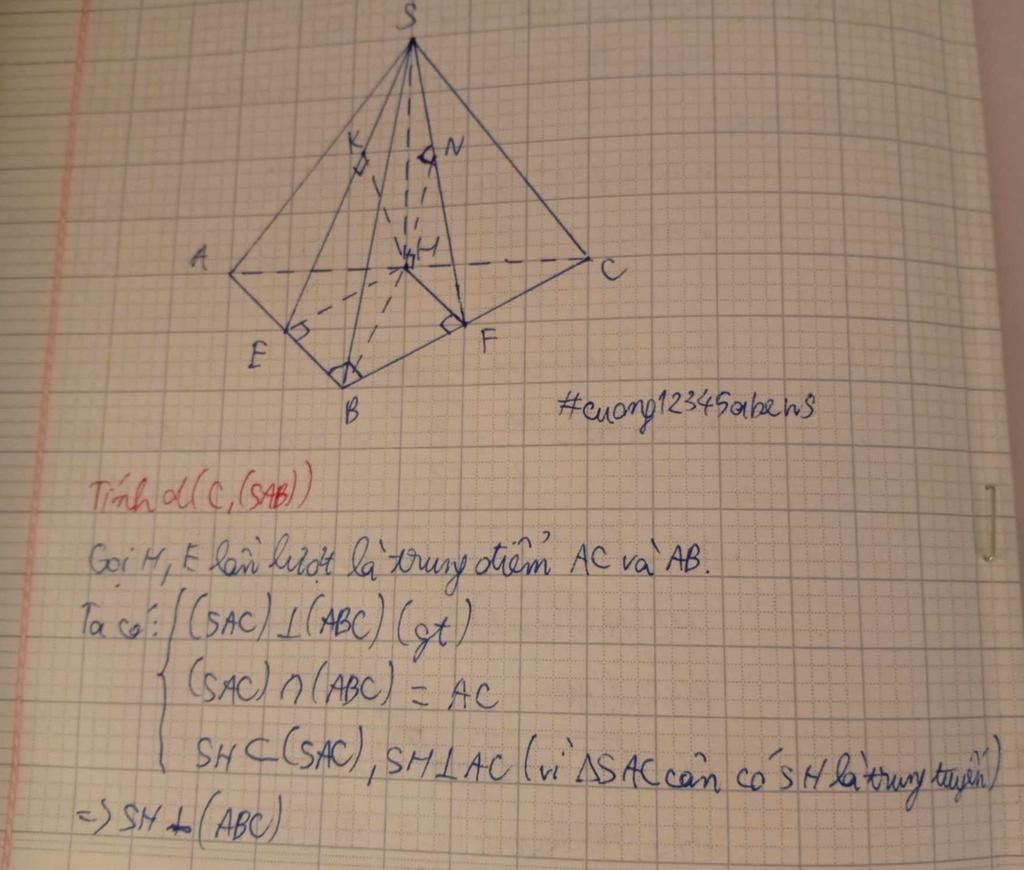 S
K
N
A
H
C
E
F
B
#cuong12345abcns
Tính d(C,(SAB))
Gọi H, E lần lượt là trung điểm AC và AB.
Ta có: (SAC)⊥(ABC) (gt)
(SAC)∩(ABC) = AC
SH⊂(SAC), SH⊥AC (vì ΔSAC cân có SH là trung tuyến)
=> SH⊥(ABC)